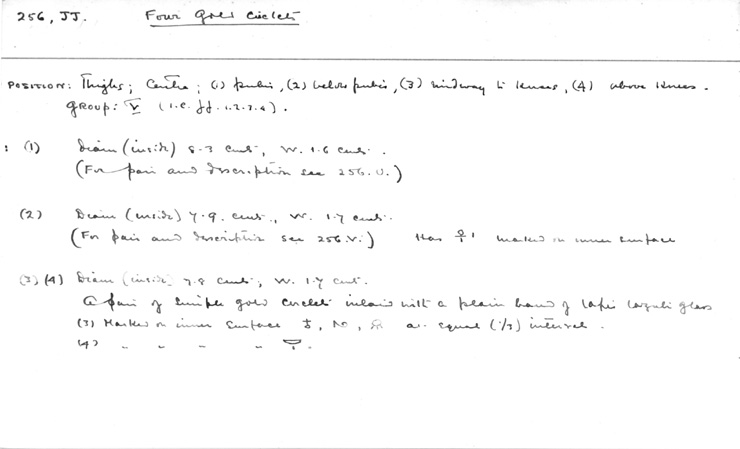 256, JJ. Four Gold Circlets
POSITION: Thighs; Centre; (1) pubis, (2) below pubis, (3) midway to knees, (4) above knees.
GROUP: V (i.e. JJ. 1.2.3.4).
: (1) Diam (inside) 8.3 cent, W. 1.6 cent.
(For pair and description see 256.U.)
(2) Diam (inside) 7.9. cent., W. 1.7 cent.
(For pair and description see 256.V.) Has marked on inner surface
(3) (4) Diam (inside) 7.8 cent, W. 1.7 cent.
A pair of simple gold circlets inlaid with a plain band of lapis lazuli glass
(3) Marked on inner surface at equal (1/3) interval.
(4) " " " "